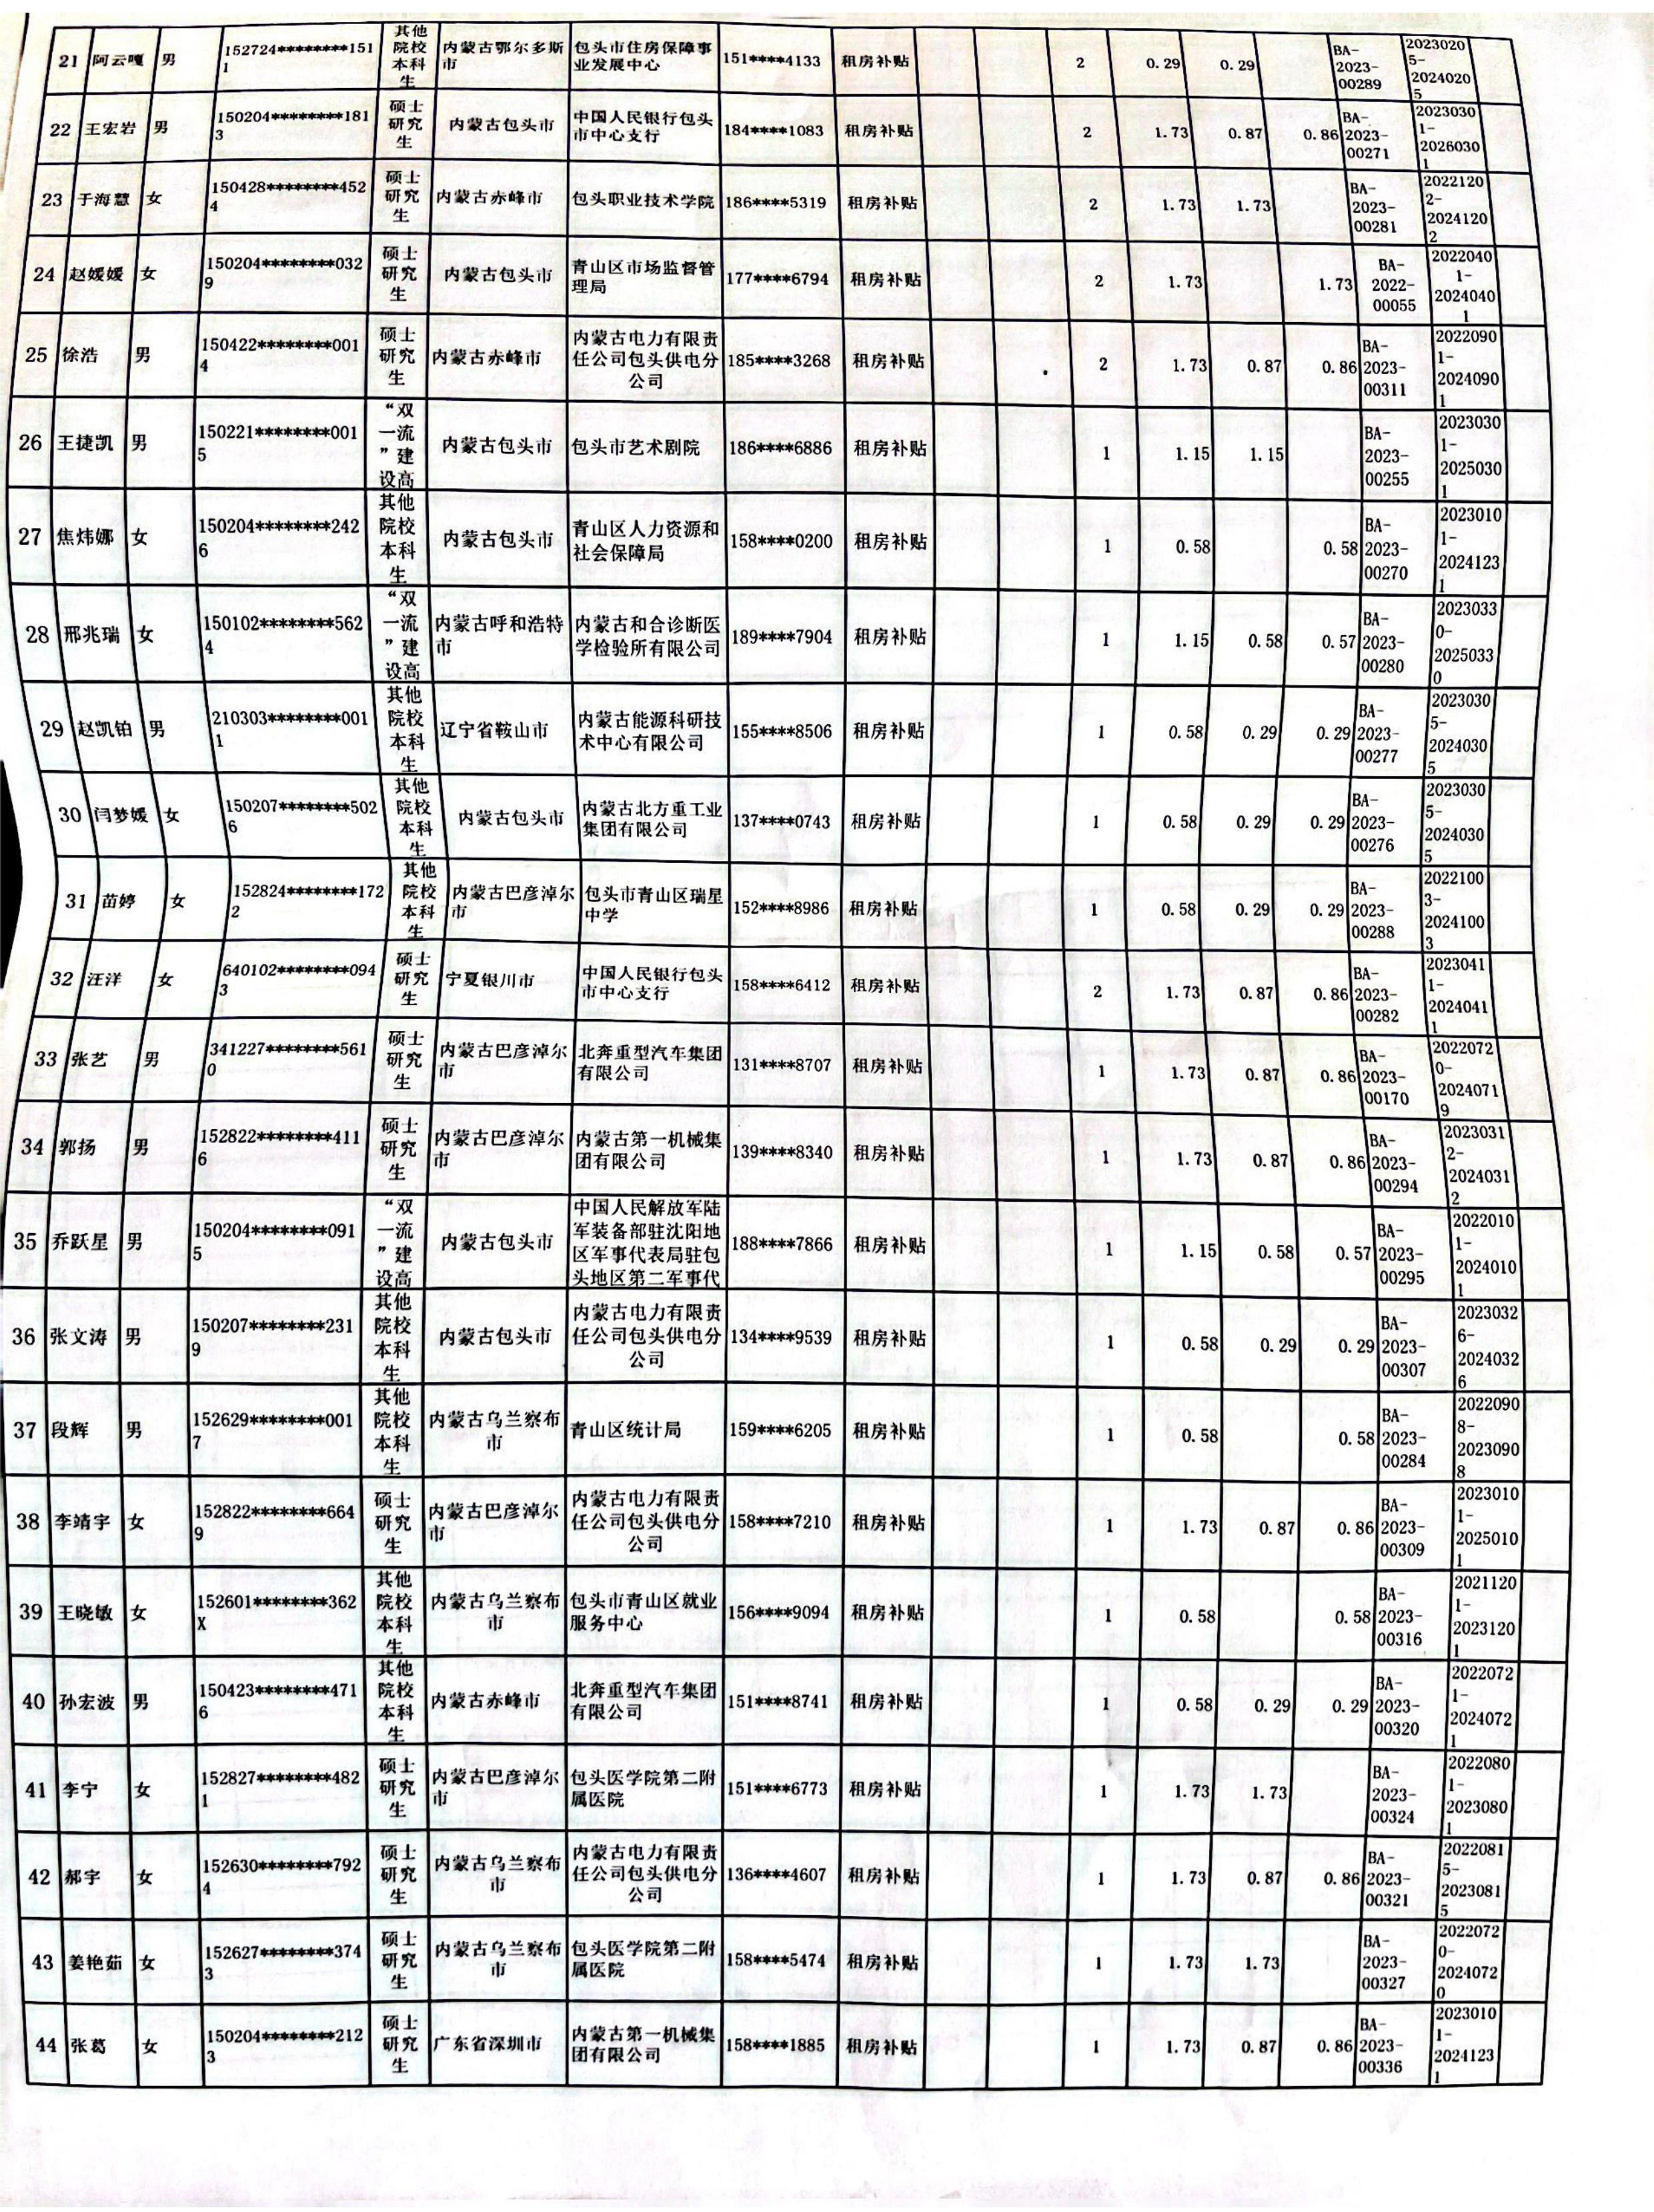 21 阿云嘎 男 152724********1511 其他院校本科生 内蒙古鄂尔多斯市 包头市住房保障事业发展中心 151****4133 租房补贴 2 0.29 0.29 BA-2023-00289 20230205-20240205
22 王宏岩 男 150204********1813 硕士研究生 内蒙古包头市 中国人民银行包头市中心支行 184****1083 租房补贴 2 1.73 0.87 0.86 BA-2023-00271 20230301-20260301
23 于海慧 女 150428********4524 硕士研究生 内蒙古赤峰市 包头职业技术学院 186****5319 租房补贴 2 1.73 1.73 BA-2023-00281 20221202-20241202
24 赵媛媛 女 150204********0329 硕士研究生 内蒙古包头市 青山区市场监督管理局 177****6794 租房补贴 2 1.73 1.73 BA-2022-00055 20220401-20240401
25 徐浩 男 150422********0014 硕士研究生 内蒙古赤峰市 内蒙古电力有限责任公司包头供电分公司 185****3268 租房补贴 2 1.73 0.87 0.86 BA-2023-00311 20220901-20240901
26 王捷凯 男 150221********0015 “双一流”建设高 内蒙古包头市 包头市艺术剧院 186****6886 租房补贴 1 1.15 1.15 BA-2023-00255 20230301-20250301
27 焦炜娜 女 150204********2426 其他院校本科生 内蒙古包头市 青山区人力资源和社会保障局 158****0200 租房补贴 1 0.58 0.58 BA-2023-00270 20230101-20241231
28 邢兆瑞 女 150102********5624 “双一流”建设高 内蒙古呼和浩特市 内蒙古和合诊断医学检验所有限公司 189****7904 租房补贴 1 1.15 0.58 0.57 BA-2023-00280 20230330-20250330
29 赵凯铂 男 210303********0011 其他院校本科生 辽宁省鞍山市 内蒙古能源科研技术中心有限公司 155****8506 租房补贴 1 0.58 0.29 0.29 BA-2023-00277 20230305-20240305
30 闫梦媛 女 150207********5026 其他院校本科生 内蒙古包头市 内蒙古北方重工业集团有限公司 137****0743 租房补贴 1 0.58 0.29 0.29 BA-2023-00276 20230305-20240305
31 苗婷 女 152824********1722 其他院校本科生 内蒙古巴彦淖尔市 包头市青山区瑞星中学 152****8986 租房补贴 1 0.58 0.29 0.29 BA-2023-00288 20221003-20241003
32 汪洋 女 640102********0943 硕士研究生 宁夏银川市 中国人民银行包头市中心支行 158****6412 租房补贴 2 1.73 0.87 0.86 BA-2023-00282 20230411-20240411
33 张艺 男 341227********5610 硕士研究生 内蒙古巴彦淖尔市 北奔重型汽车集团有限公司 131****8707 租房补贴 1 1.73 0.87 0.86 BA-2023-00170 20220720-20240719
34 郭扬 男 152822********4116 硕士研究生 内蒙古巴彦淖尔市 内蒙古第一机械集团有限公司 139****8340 租房补贴 1 1.73 0.87 0.86 BA-2023-00294 20230312-20240312
35 乔跃星 男 150204********0915 “双一流”建设高 内蒙古包头市 中国人民解放军陆军装备部驻沈阳地区军事代表局驻包头地区第二军事代 188****7866 租房补贴 1 1.15 0.58 0.57 BA-2023-00295 20220101-20240101
36 张文涛 男 150207********2319 其他院校本科生 内蒙古包头市 内蒙古电力有限责任公司包头供电分公司 134****9539 租房补贴 1 0.58 0.29 0.29 BA-2023-00307 20230326-20240326
37 段辉 男 152629********0017 其他院校本科生 内蒙古乌兰察布市 青山区统计局 159****6205 租房补贴 1 0.58 0.58 BA-2023-00284 20220908-20230908
38 李靖宇 女 152822********6649 硕士研究生 内蒙古巴彦淖尔市 内蒙古电力有限责任公司包头供电分公司 158****7210 租房补贴 1 1.73 0.87 0.86 BA-2023-00309 20230101-20250101
39 王晓敏 女 152601********362X 其他院校本科生 内蒙古乌兰察布市 包头市青山区就业服务中心 156****9094 租房补贴 1 0.58 0.58 BA-2023-00316 20211201-20231201
40 孙宏波 男 150423********4716 其他院校本科生 内蒙古赤峰市 北奔重型汽车集团有限公司 151****8741 租房补贴 1 0.58 0.29 0.29 BA-2023-00320 20220721-20240721
41 李宁 女 152827********4821 硕士研究生 内蒙古巴彦淖尔市 包头医学院第二附属医院 151****6773 租房补贴 1 1.73 1.73 BA-2023-00324 20220801-20230801
42 郝宇 女 152630********7924 硕士研究生 内蒙古乌兰察布市 内蒙古电力有限责任公司包头供电分公司 136****4607 租房补贴 1 1.73 0.87 0.86 BA-2023-00321 20220815-20230815
43 姜艳茹 女 152627********3743 硕士研究生 内蒙古乌兰察布市 包头医学院第二附属医院 158****5474 租房补贴 1 1.73 1.73 BA-2023-00327 20220720-20240720
44 张葛 女 150204********2123 硕士研究生 广东省深圳市 内蒙古第一机械集团有限公司 158****1885 租房补贴 1 1.73 0.87 0.86 BA-2023-00336 20230101-20241231